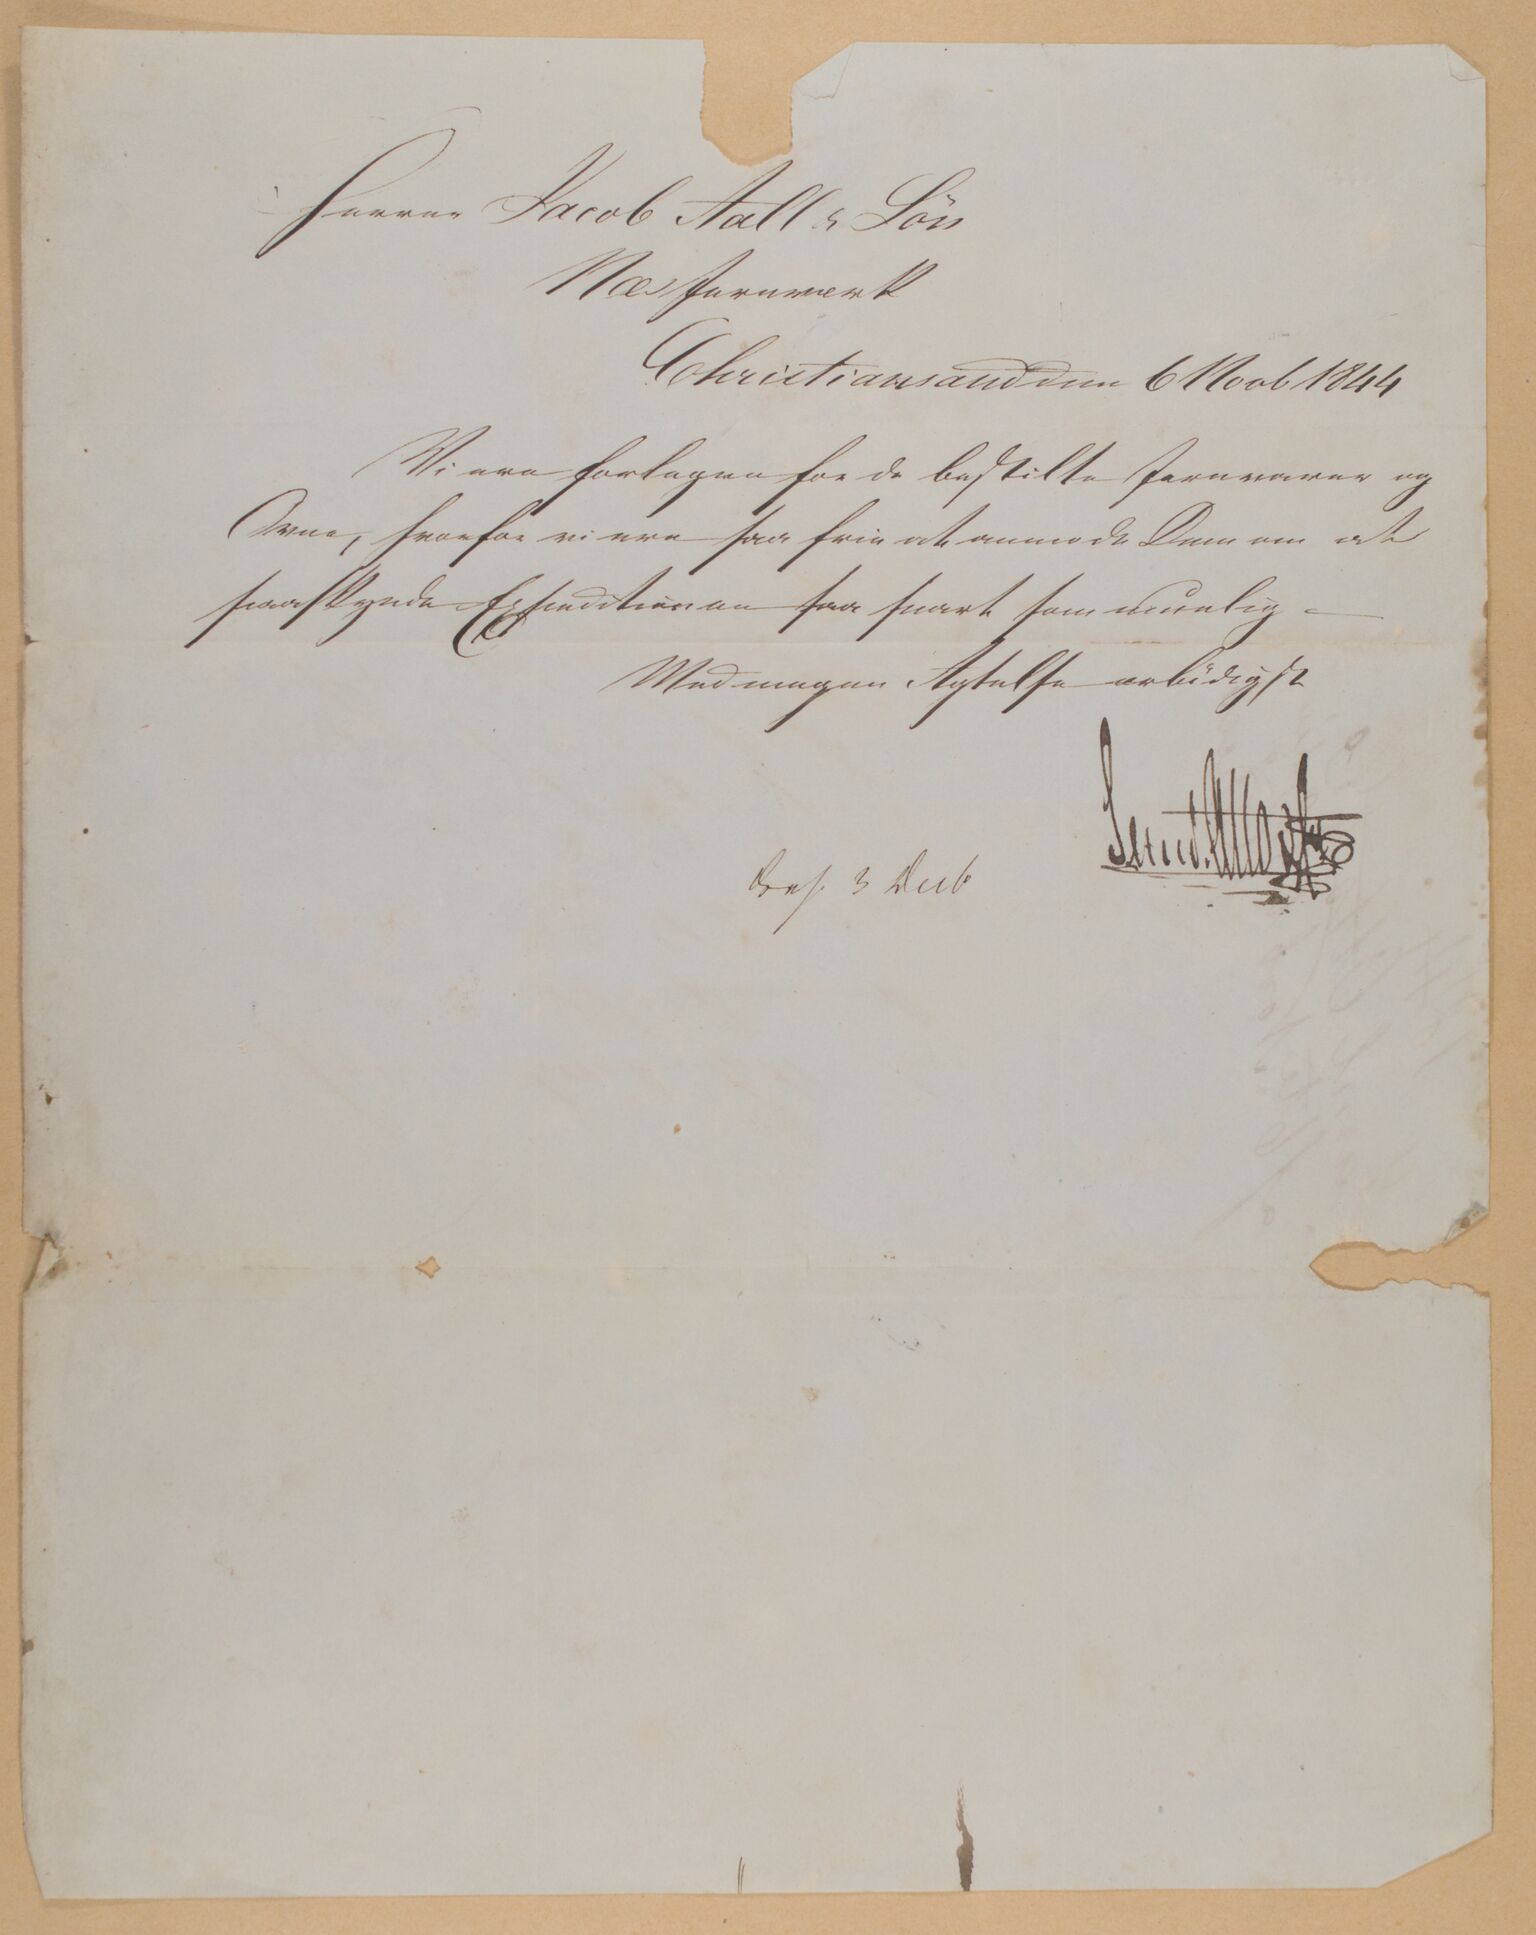 Herrer Jacob Aall & Søn
Næs Jernværk
Christiansand den 6 Novb 1844
Vi ere forlegen for de bestilte Jernvarer og
Ovne, hvorfor vi ere saa frie at anmode Dem om at
paaskynde Expeditionen saa snart som muelig –
Med megen Agtelse ærbödigst
3 Decb